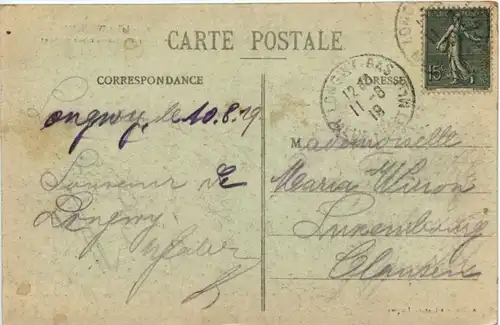 CARTE POSTALE
CORRESPONDANCE
ADRESSE
LONGWY-BAS
12
11 -8
19
15c
Longwy, le 10.8.19
Souvenir de
Longwy
Mademoiselle
Maria
Luxembourg
Clausen